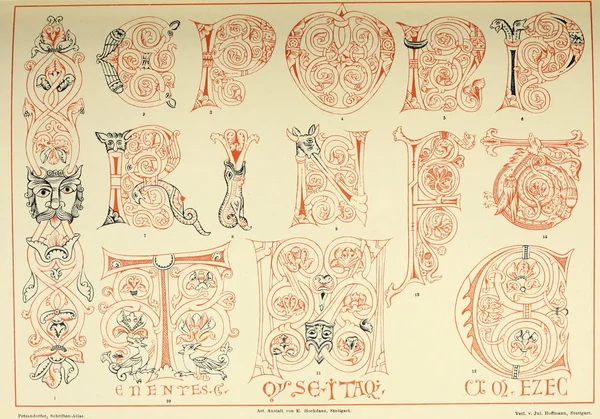 2 3 4 5 6
P R P
R I N P
7 8 9 13 14
T M
ENENTES·C· EZEC
1 10 11 12
Petzendorfer, Schriften-Atlas. Art. Anstalt von E. Hochdanz, Stuttgart. Verl. v. Jul. Hoffmann, Stuttgart.